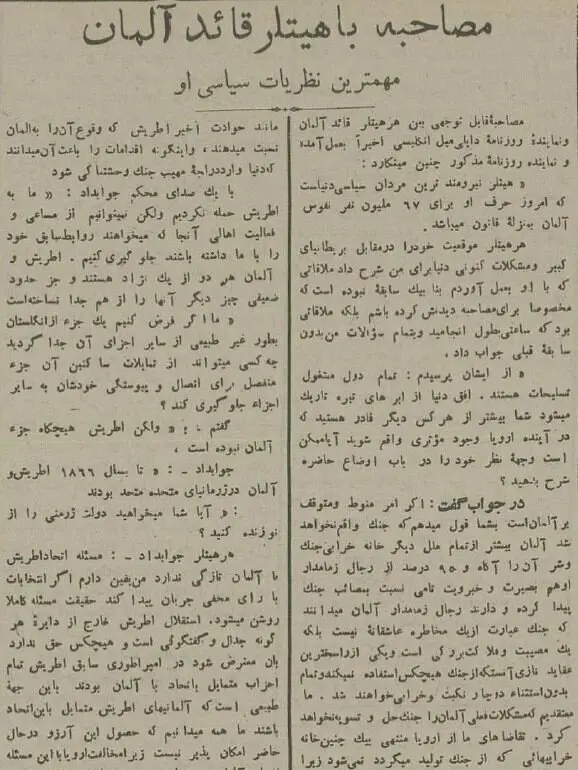 مصاحبه با هیتلر قائد آلمان
مهمترین نظریات سیاسی او
مصاحبهٔ قابل توجهی بین هرهیتلر قائد آلمان
ونمایندهٔ روزنامهٔ دایلی میل انگلیسی اخیراً بعمل آمده
و نماینده روزنامهٔ مذکور چنین مینگارد :
« هیتلر نیرومند ترین مردان سیاسی دنیاست
که امروز حرف او برای ۶۷ ملیون نفر نفوس
آلمان بمنزلهٔ قانون میباشد .
هرهیتلر موقعیت خودرا درمقابل بریطانیای
کبیر ومشکلات کنونی دنیا برای من شرح داد ملاقاتی
که با او بعمل آوردم بنا بیك سابقهٔ نبوده است که
مخصوصا برای مصاحبه دیدنش کرده باشم بلکه ملاقاتی
بود که ساعتی بطول انجامید وبتمام سؤالات من بدون
سابقهٔ قبلی جواب داد .
« از ایشان پرسیدم : تمام دول مشغول
تسلیحات هستند . افق دنیا از ابر های تیره تاریك
میشود شما بیشتر از هر کس دیگر قادر هستید که
در آینده اروپا وجود مؤثری واقع شوید آیا ممکن
است وجههٔ نظر خود را در باب اوضاع حاضره
شرح بدهید ؟
در جواب گفت : اگر امر منوط ومتوقف
بر آلمان است بشما قول میدهم که جنك واقع نخواهد
شد آلمان بیشتر از تمام ملل دیگر خانه خرابی جنك
وشر آن را آگاه و ۹۵ درصد از رجال زمامدار
اوهم بصیرت و خبرویت تامی نسبت بمصائب جنك
پیدا کرده و دارند رجال زمامدار آلمان میدانند
که جنك عبارت از یك مخاطره عاشقانهٔ نیست بلکه
یك مصیبت وفلاکت بزرگی است ویکی از راسخترین
عقاید نازی آنستکه از جنك هیچکس استفاده نمیکند وتمام
بدون استثناء دوچار نکبت وخرابی خواهند شد . ما
معتقدیم که مشکلات فعلی آلمان را جنك حل و تسویه نخواهد
کرد . تقاضاهای ما از اروپا منتهی بیك چنین خانه
خرابیهائی که از جنك تولید میگردد نمی شود زیرا
مانند حوادث اخیر اطریش که وقوع آن را به آلمان
نسبت میدهند ، واینگونه اقدامات را باعث آن میدانند
که دنیا وارد در جبههٔ مهیب جنك وحشتناکی شود
با یك صدای محکم جوابداد : « ما به
اطریش حمله نکردیم ولکن نمیتوانیم از مساعی و
فعالیت اهالی آنجا که میخواهند روابط سابق خود
را با ما داشته باشند جلو گیری کنیم . اطریش و
آلمان هر دو از یك نژاد هستند و جز حدود
ضعیفی چیز دیگر آنها را از هم جدا نساخته است
« ما اگر فرض کنیم یك جزء از انگلستان
بطور غیر طبیعی از سایر اجزای آن جدا گردید
چه کسی میتواند از تمایلات ساکنین آن جزء
منفصل برای اتصال و پیوستگی خودشان به سایر
اجزاء جلو گیری کند ؟
گفتم ـ : « ولکن اطریش هیچگاه جزء
آلمان نبوده است ،
جوابداد ـ : « تا بسال ۱۸۶۶ اطریش و
آلمان در ژرمانیای متحده متحد بودند
: « آیا شما میخواهید دولت ژرمنی را از
نو زنده کنید ؟
هرهیتلر جوابداد ـ : مسئله اتحاد اطریش
با آلمان تازگی ندارد من یقین دارم اگر انتخابات
با رای مخفی جریان پیدا کند حقیقت مسئله کاملا
روشن میشود. استقلال اطریش خارج از دایرهٔ هر
گونه جدال و گفتگوئی است و هیچکس حق ندارد
بان معترض شود در امپراطوری سابق اطریش تمام
احزاب متمایل باتحاد با آلمان بودند باین جههٔ
طبیعی است که آلمانیهای اطریش متمایل باین اتحاد
باشند ما همه میدانیم که حصول این آرزو درحال
حاضر امکان پذیر نیست زیرا مخالفت اروپا با این مسئله